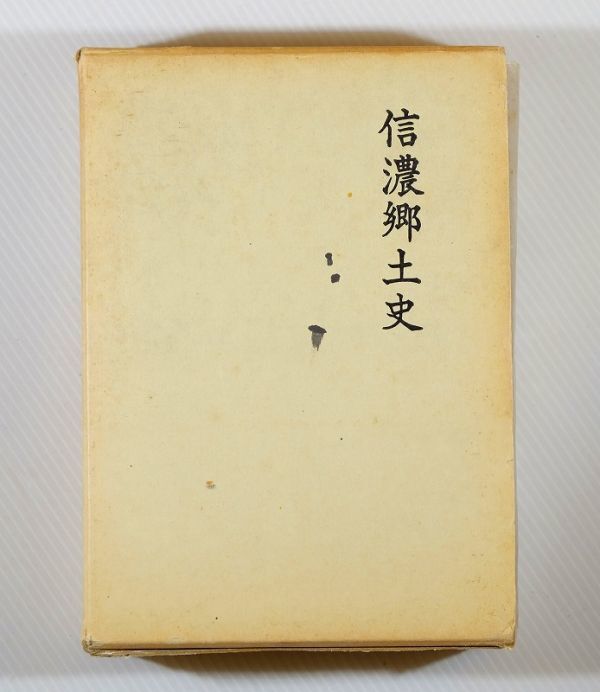 信濃郷土史